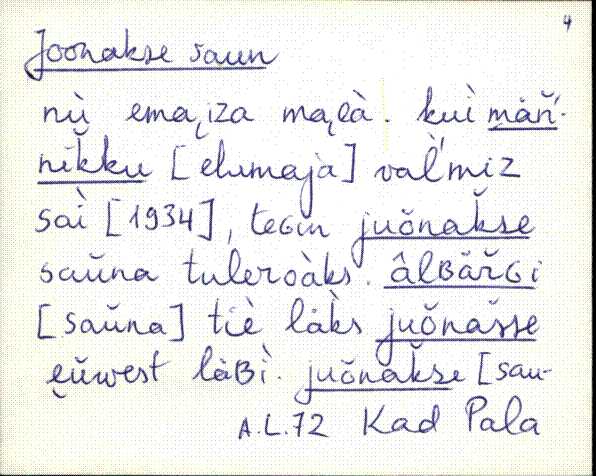 4
Joonakse saun
nù ema, iza ma̮a̮là. kuì mäň́-
nǐkku [elumaja] vaĺmiz
saì [1934], teɢin juǒnakše
saǔna tuleroàks. âlʙäřɢi
[saǔna] tiè läks juǒnašse
eǔwest läʙì. juǒnakše [sau-
A.L.72 Kad Pala